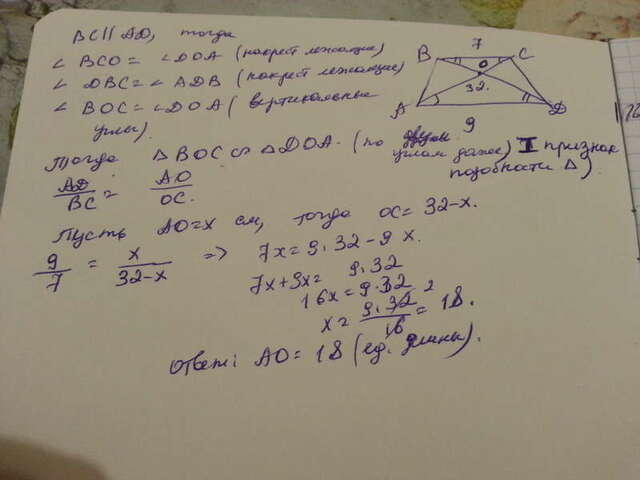 BC || AD, тогда
∠ BCO = ∠DOA (накрест лежащие)
∠ DBC = ∠ ADB (накрест лежащие)
∠ BOC = ∠DOA (вертикальные
углы).
B 7 C
O
32.
A D
9
Тогда △ BOC ∽ △DOA. (по двум
углам даже) I признак
подобности △).
AD/BC = AO/OC.
Пусть AO=x см, тогда OC= 32-x.
9/7 = x/32-x => 7x = 9·32-9x.
7x+9x= 9·32
16x = 9·32
x = 9·32/16 2 = 18.
Ответ: AO = 18 (ед. длины).